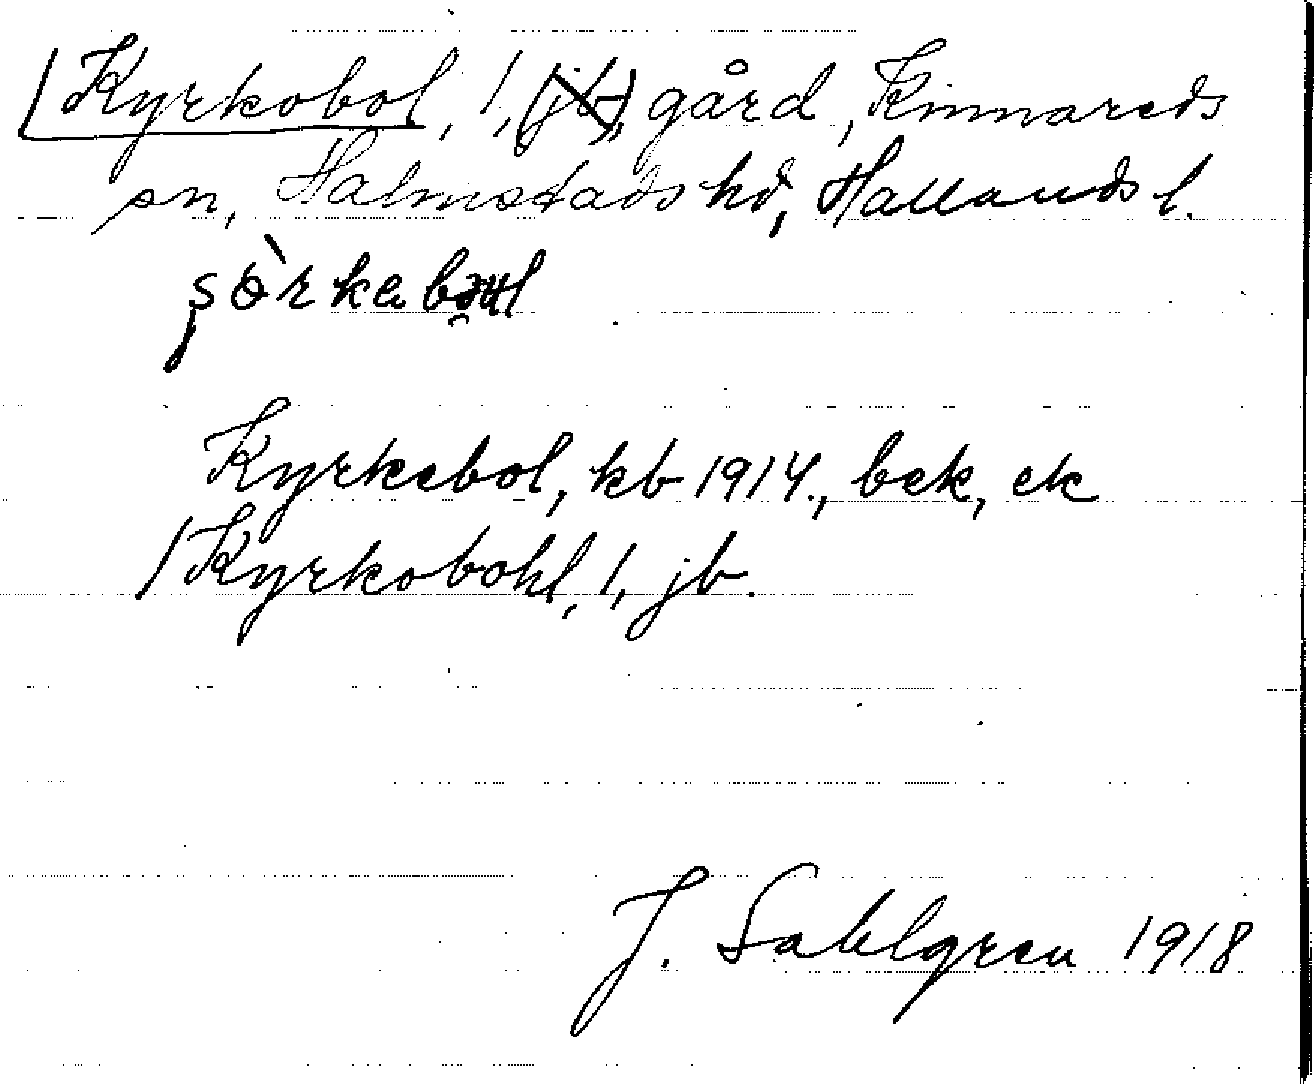 Kyrkobol, 1, (jb), gård, Kinnareds
sn, Halmstads hd, Hallands l.
Kyrkebol, kb 1914, bek, ek
/Kyrkobohl, 1, jb.
J. Sahlgren 1918